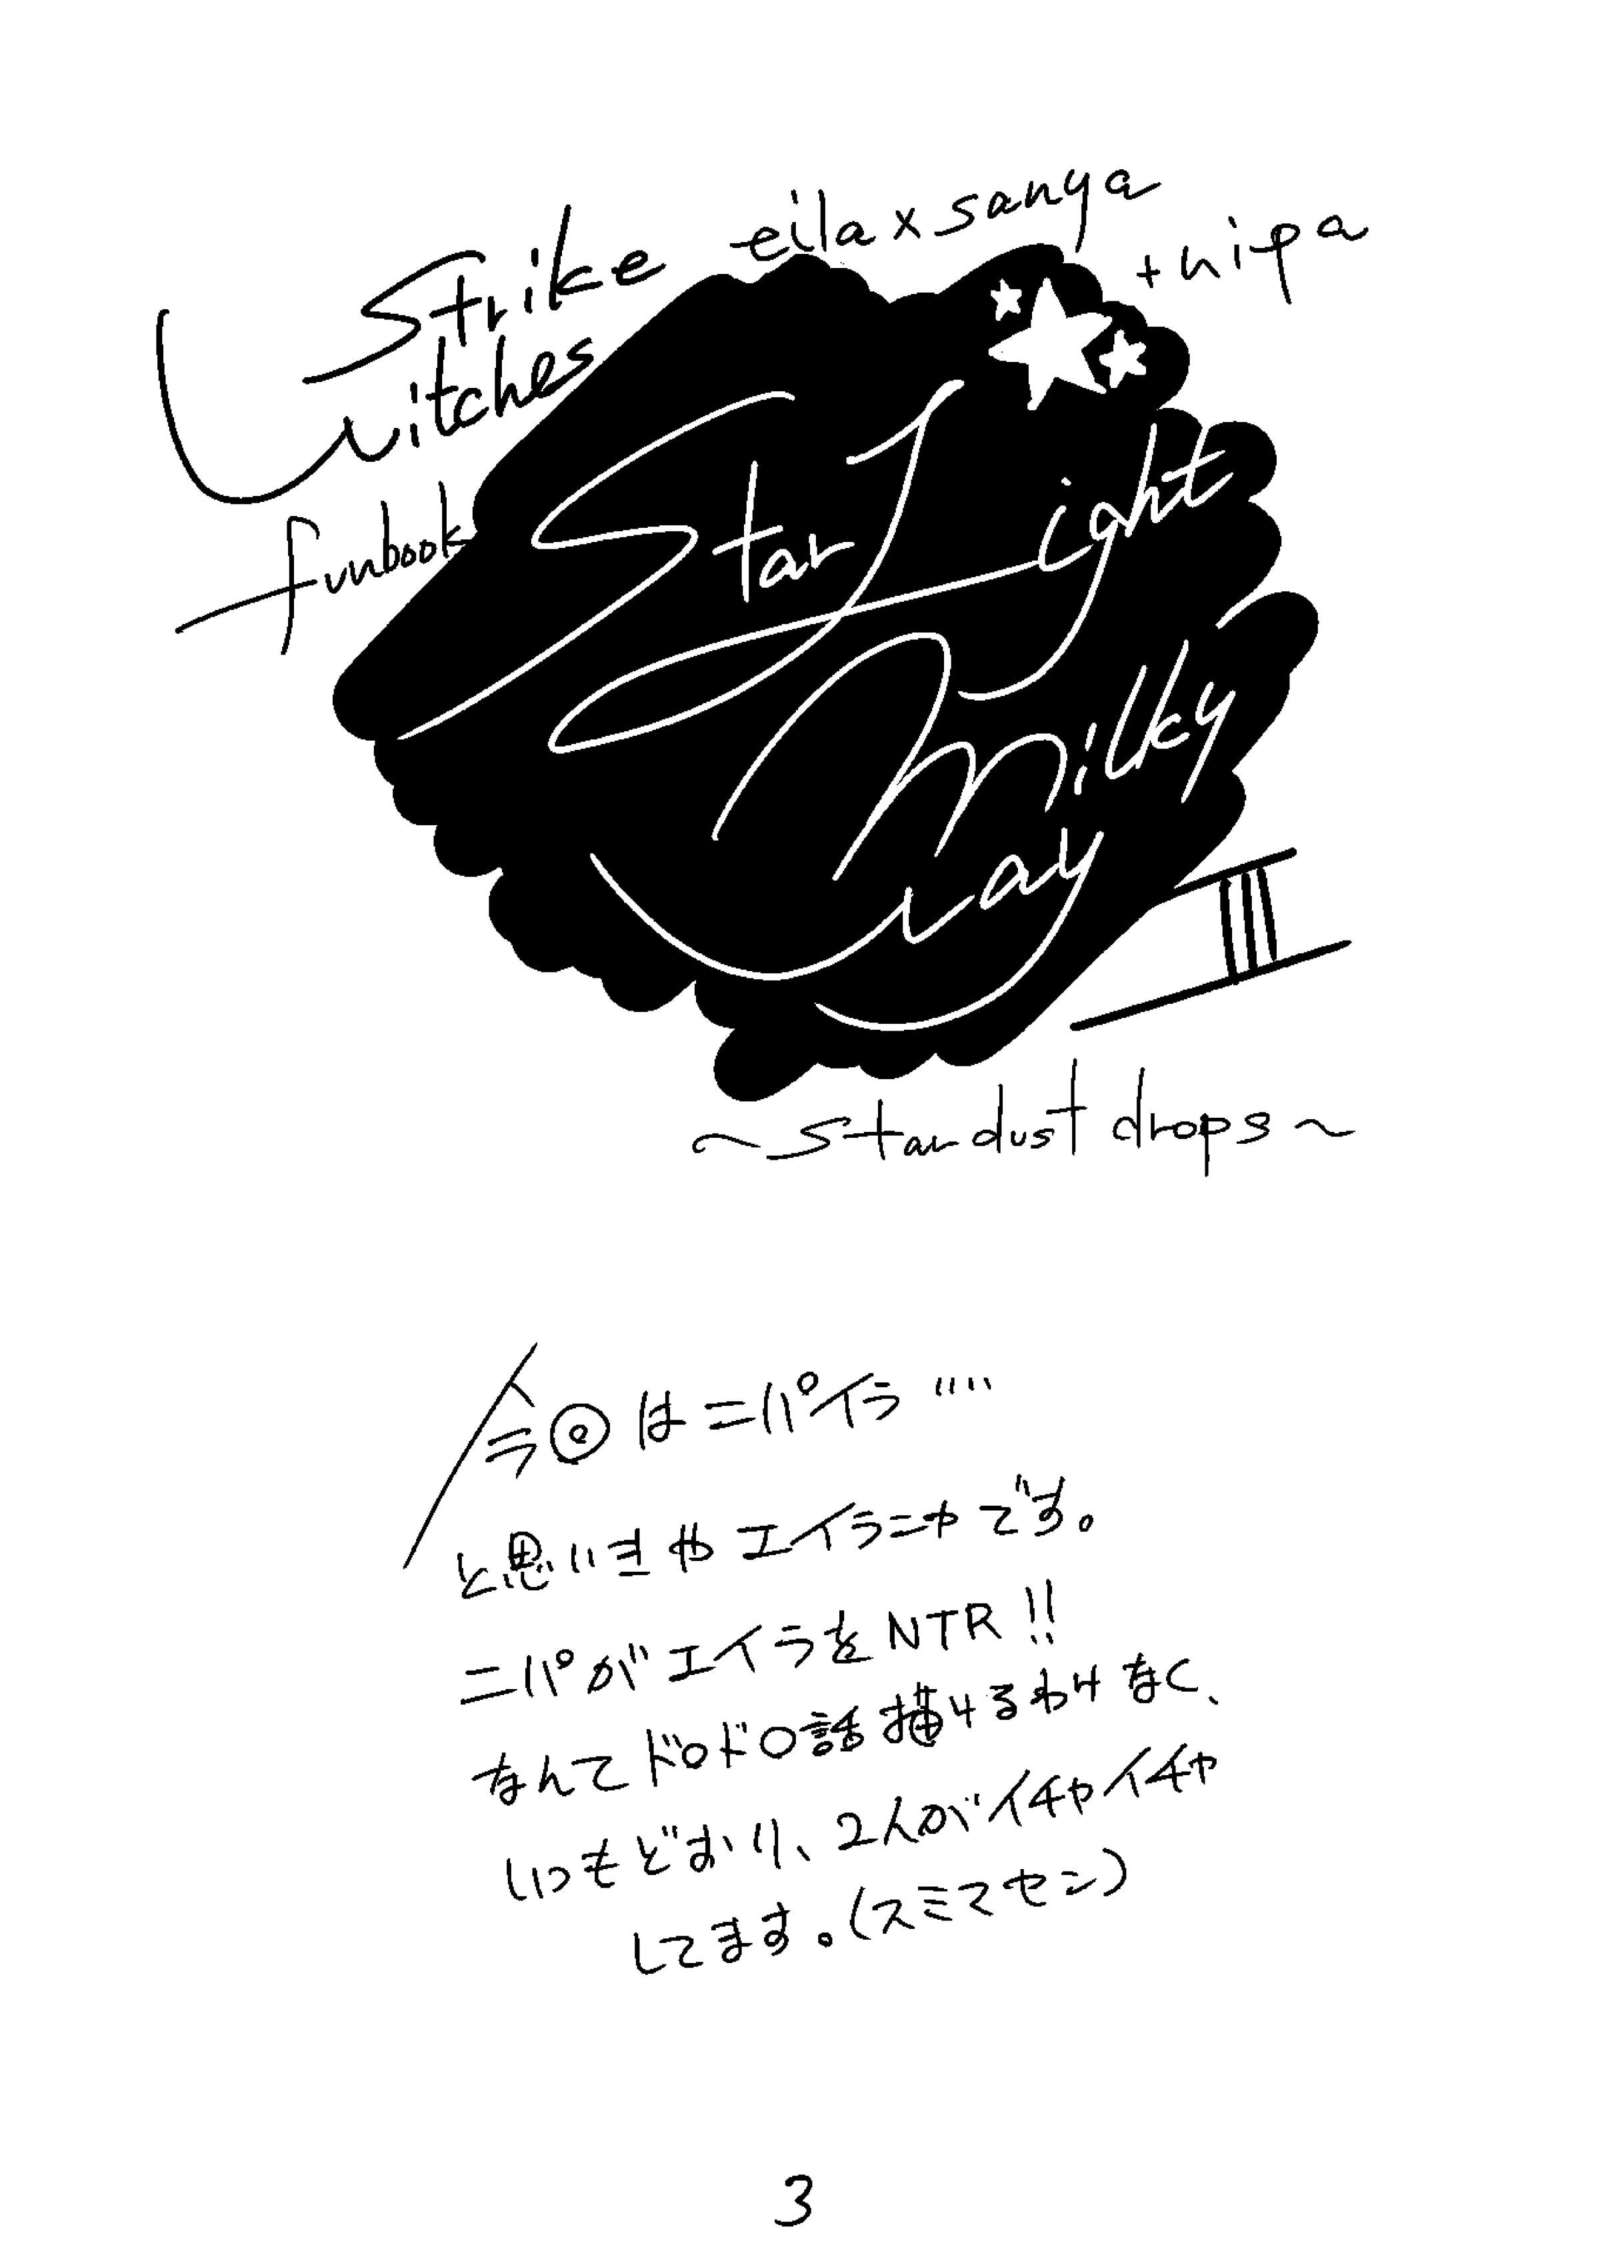 eila x sanya
+ nipa
Strike
Witches
funbook
Star Light
Milky
Way
III
~stardust drops~
今回はニパイラ……
と思いきやエイラニャです。
ニパがエイラをNTR!!
なんてドロドロ話描けるわけなく、
いつもどおり、2人がイチャイチャ
してます。(スミマセン)
3